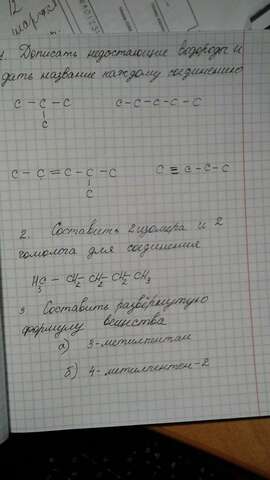 12
1. Дописать недостающие водороды и
дать название каждому соединению
C - C - C
C
C-C-C-C-C
C - C = C - C - C
C
C ≡ C - C - C
2. Составить 2 изомера и 2
гомолога для соединения
H₃C - CH₂ - CH₂ - CH₂ - CH₃
3 Составить развёрнутую
формулу вещества
а) 3-метилпентан
б) 4-метилпентен-2